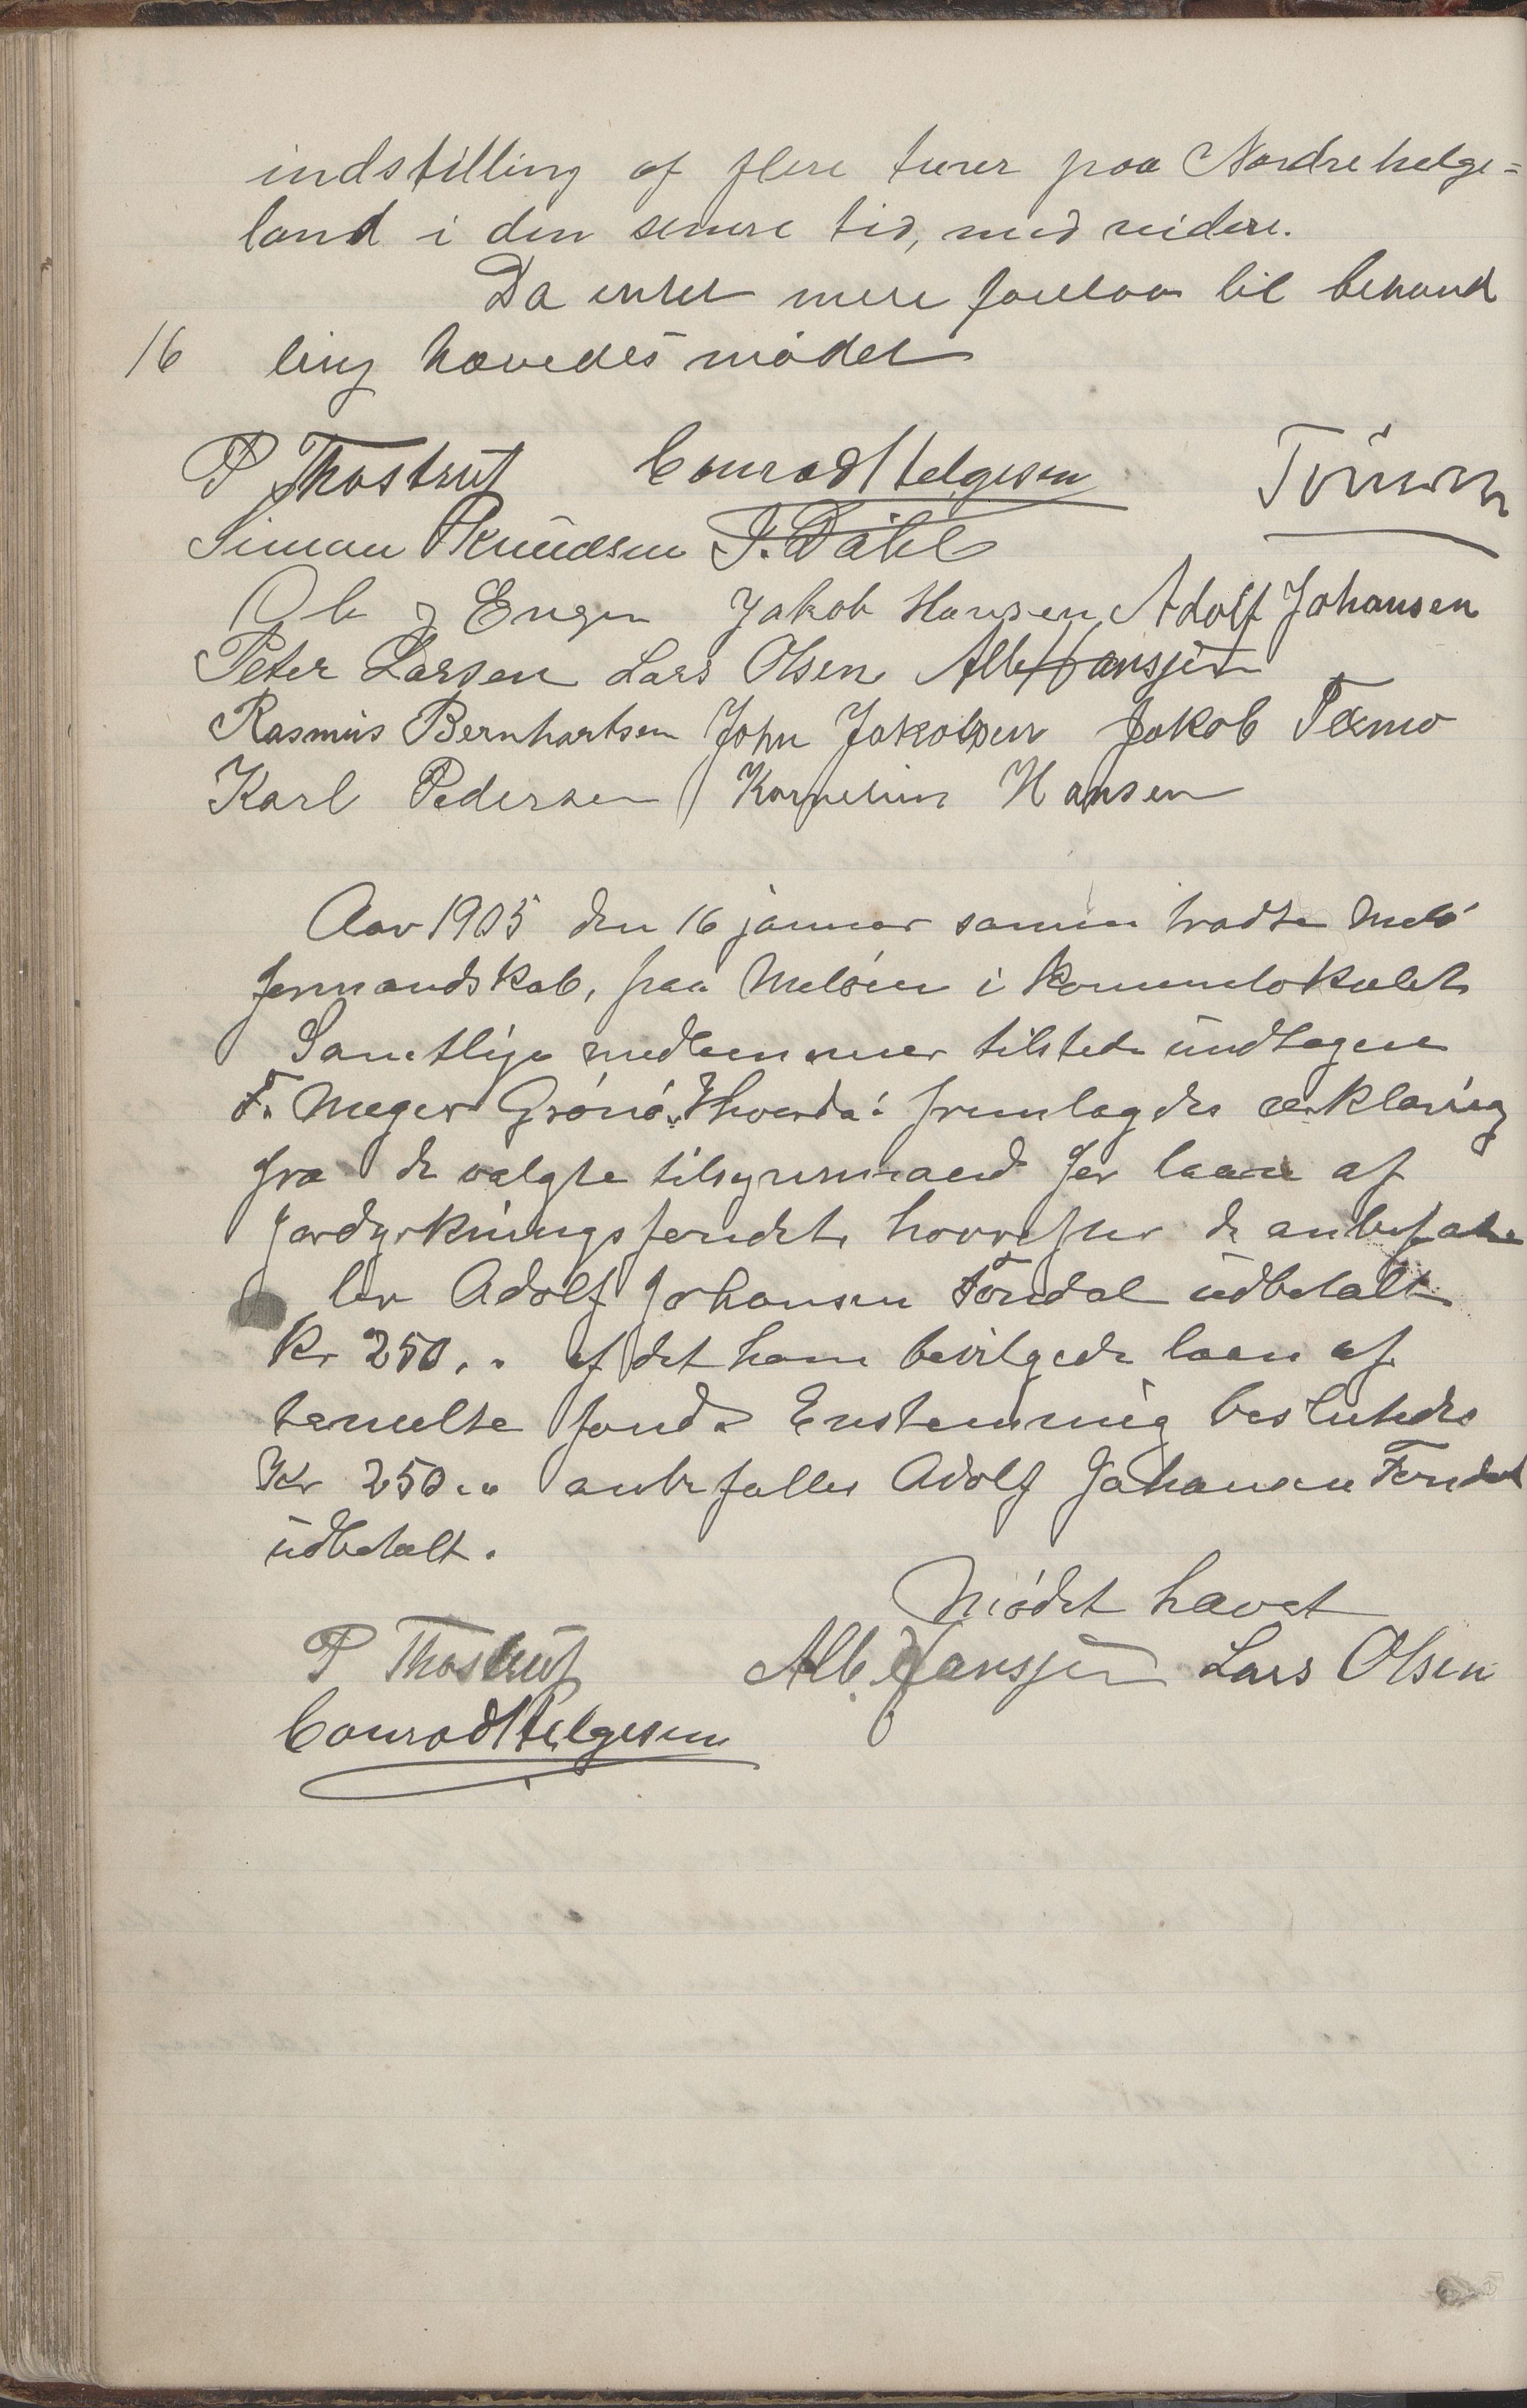 indstilling af flere turer paa Nordre helge=
land i den senere tid, med videre.
Da intet mere forelaa til behand
16 ling hævedes mødet
P Thostrup Conrad Helgesen
Simon Knudsen J. Dahl
Ole J Engen Jakob Hansen Adolf Johansen
Peter Larsen Lars Olsen Alb. Hanssen
Rasmus Bernhartsen John Jakobsen Jakob Texmo
Karl Pedersen Kornelius Hansen
Aar 1905 den 16 januar sammen traadte Melø
formandskab, paa Meløen i kommunelokalet
Samtlige medlemmer tilstede undtagen
F. Meyer Grønø. Hvorda: fremlagdes erklæring
fra de valgte tilsynsmænd for laan af
jordyrkningsfondet, hvorefter de anbefa
ler Adolf Johansen Fondal udbetalt
Kr 250.. af det ham bevilgede laan af
fond. Enstemmig besluttedes
Kr 250.. anbefalles Adolf Johansen Fondal
udbetalt.
Mødet hævet
P Thostrup Alb. Hanssen Lars Olsen
Conrad Helgesen